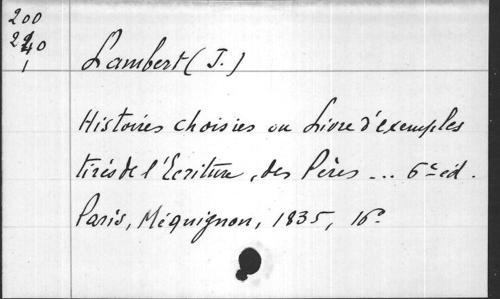 200
2240
1
Lambert (J.)
Histoires choisies ou Livre d'exemples
tirés de l'Ecriture, des Pères ... 6e éd.
Paris, Méquignon, 1835, 16º